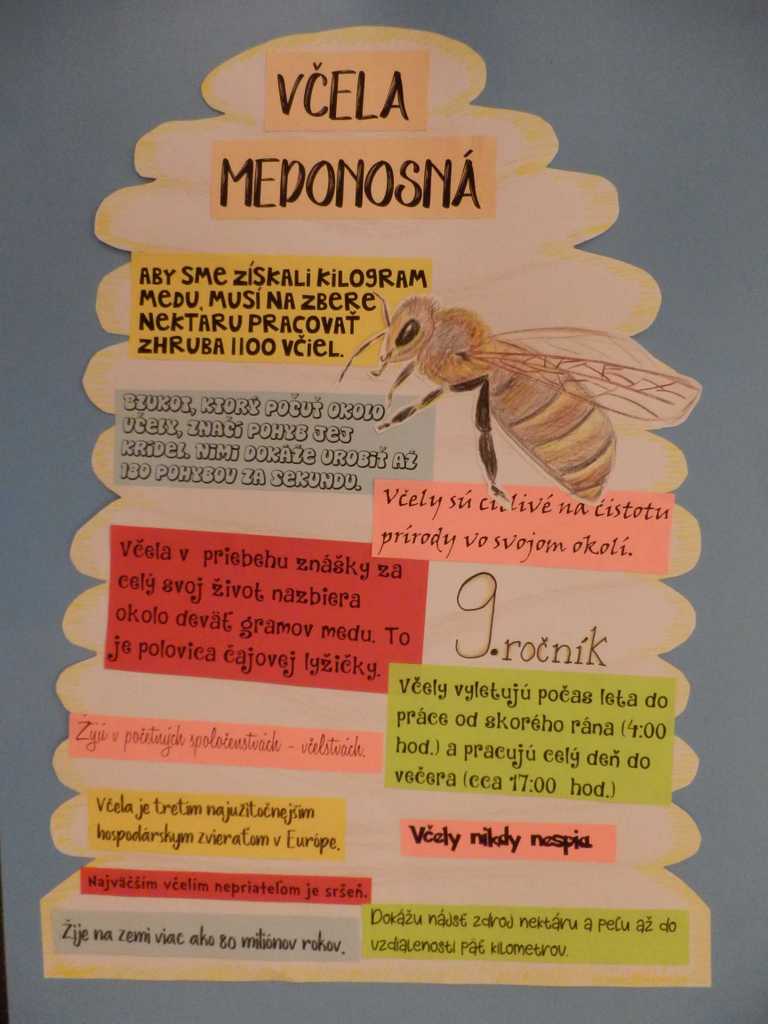 VČELA
MEDONOSNÁ
ABY SME ZÍSKALI KILOGRAM
MEDU, MUSÍ NA ZBERE
NEKTÁRU PRACOVAŤ
ZHRUBA 1100 VČIEL.
BZUKOT, KTORÝ POČUŤ OKOLO
VČELY, ZNAČÍ POHYB JEJ
KRÍDEL. NIMI DOKÁŽE UROBIŤ AŽ
180 POHYBOV ZA SEKUNDU.
Včely sú citlivé na čistotu
prírody vo svojom okolí.
Včela v priebehu znášky za
celý svoj život nazbiera
okolo deväť gramov medu. To
je polovica čajovej lyžičky.
9.ročník
Včely vyletujú počas leta do
práce od skorého rána (4:00
hod.) a pracujú celý deň do
večera (cca 17:00 hod.)
Žijú v početných spoločenstvách - včelstvách.
Včela je tretím najužitočnejším
hospodárskym zvieraťom v Európe.
Včely nikdy nespia.
Najväčším včelím nepriateľom je sršeň.
Žije na zemi viac ako 80 miliónov rokov.
Dokážu nájsť zdroj nektáru a peľu až do
vzdialenosti päť kilometrov.